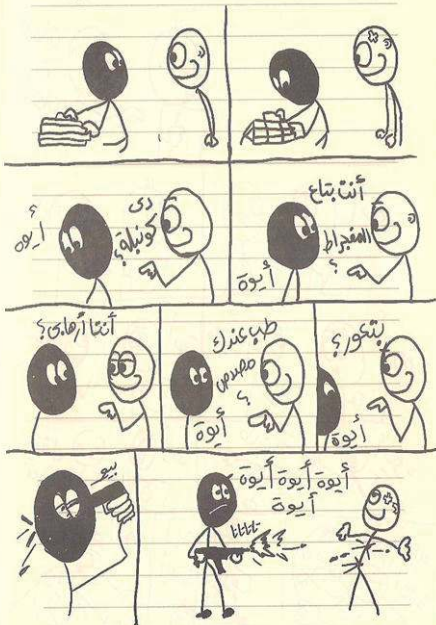 أنت بتاع
المفجراط
؟
أيوة
دى
كونبلة؟
أيوه
بتعور؟
أيوة
طب عندك
مصدص
؟
أيوة
أنتا أرهابى؟
أيوة أيوة أيوة
أيوة
تاتاتاتا
بيو